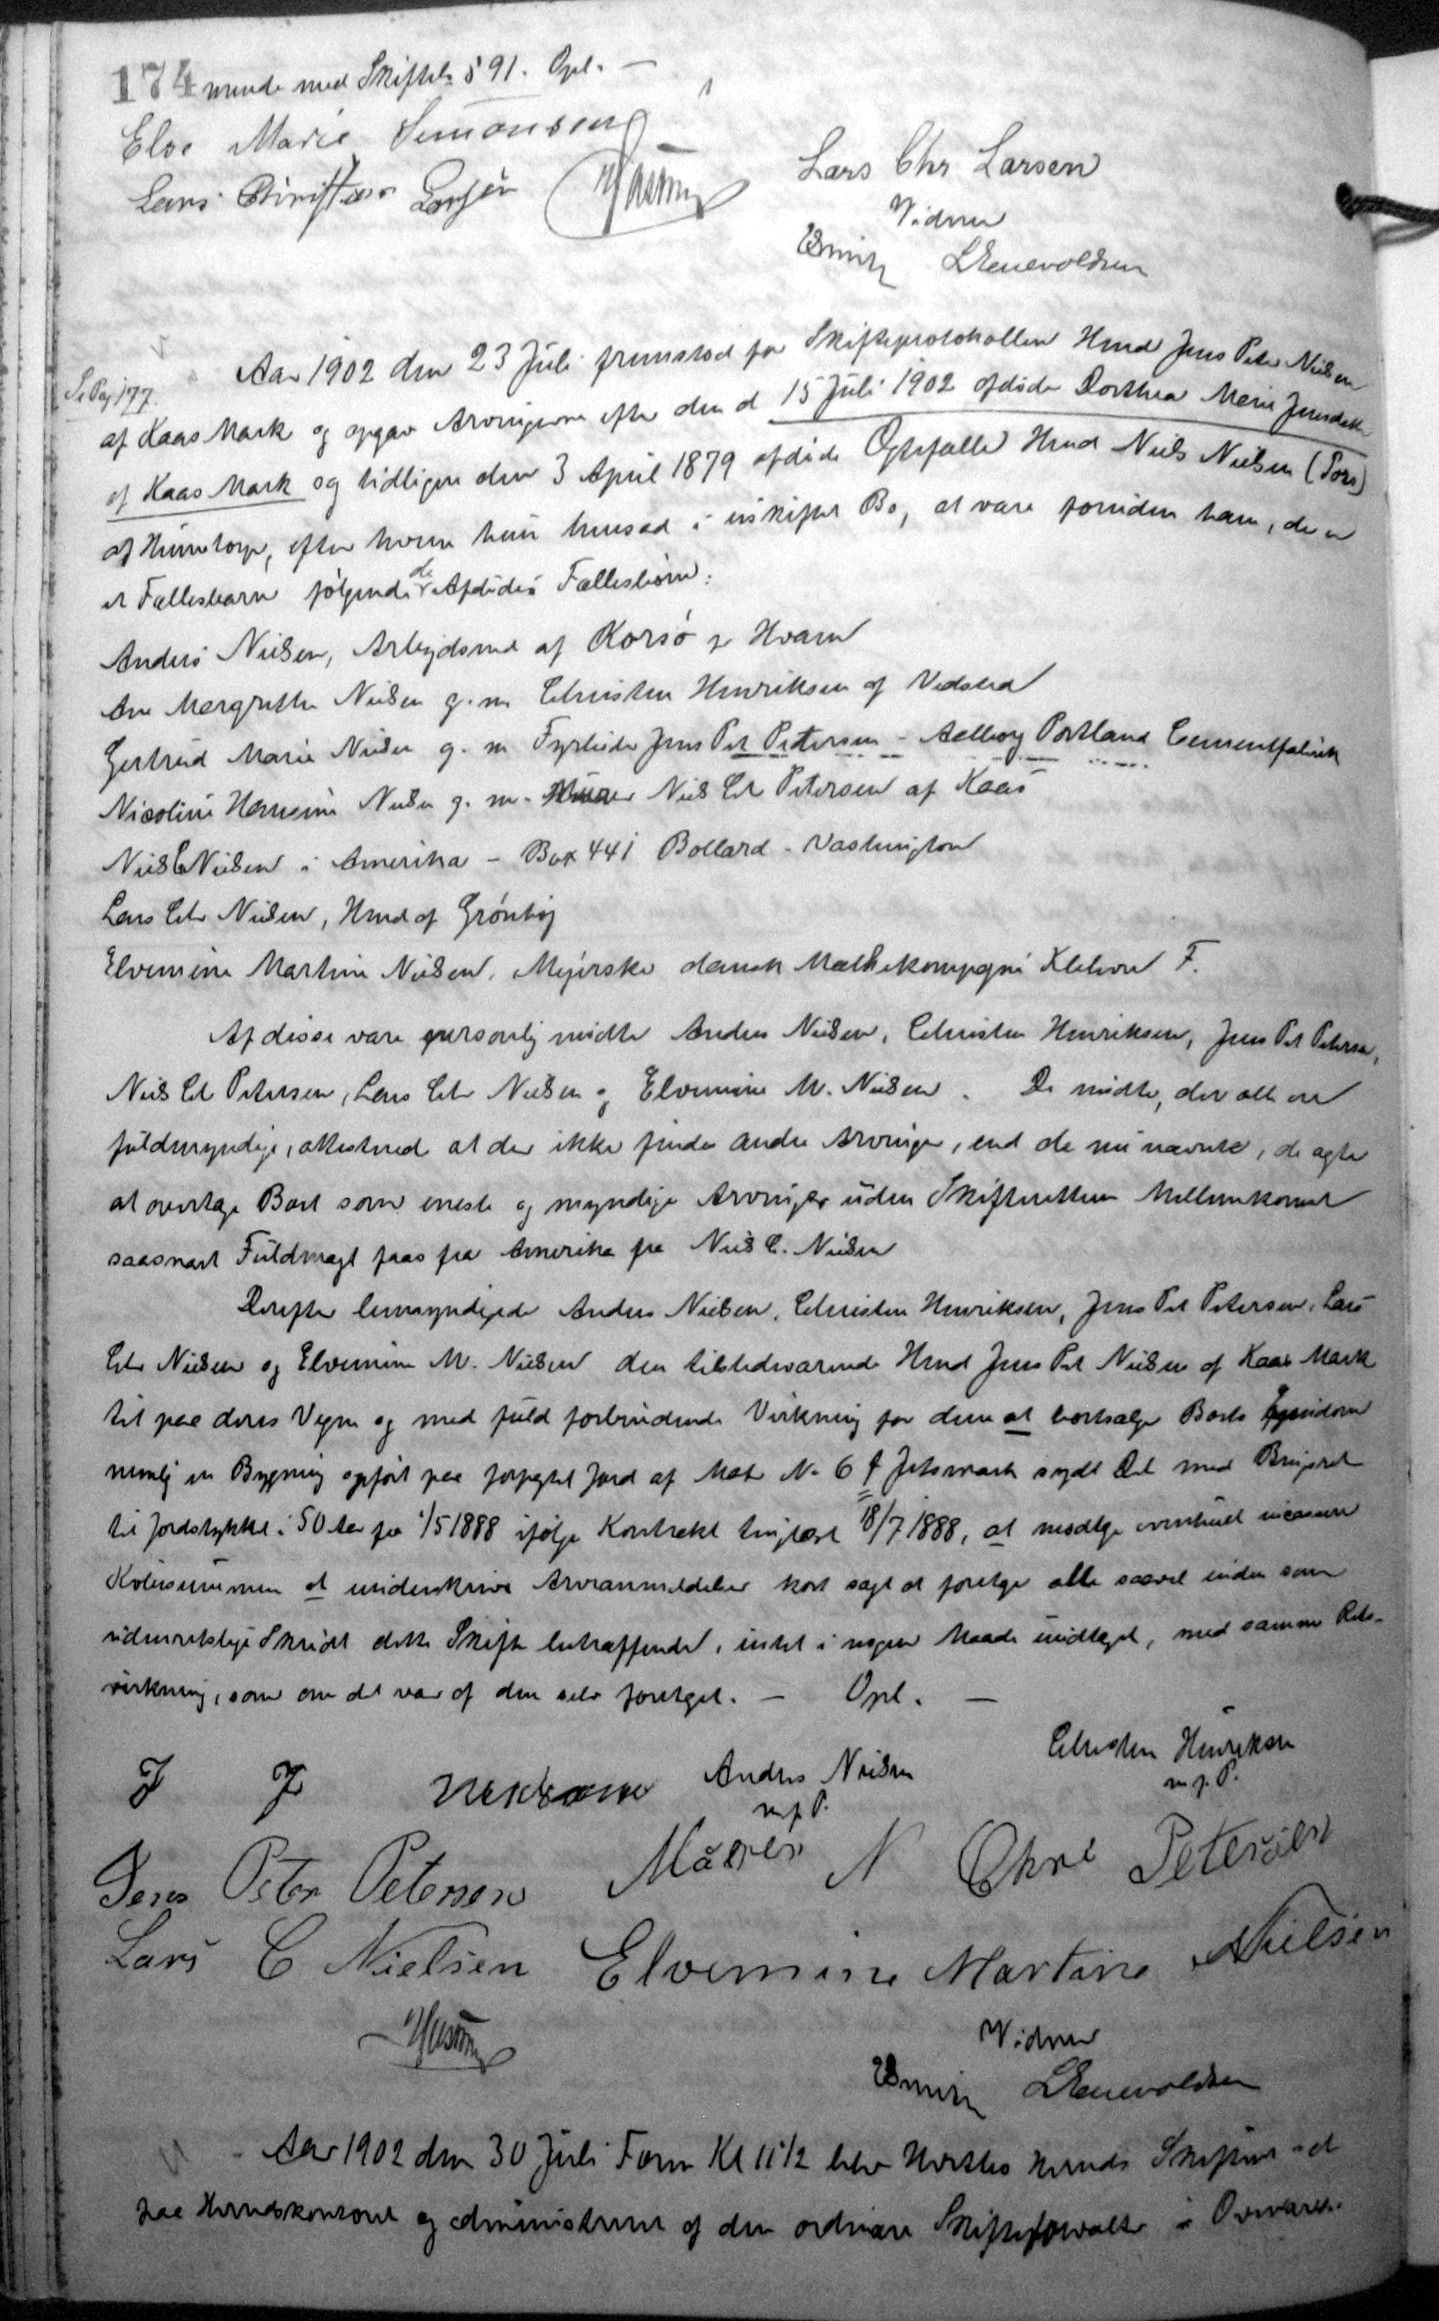 174 mende med Skiftel. § 91. Opl. —
Else Marie Simonsen
Lars Christian Larsen
Lars Chr Larsen
Vidner
LEnevoldsen
Se Pag 177.
Aar 1902 den 23 Juli fremstod for Skifteprotokollen Hmd Jens Peter Nielsen
af Kaas Mark og opgav Arvingerne efter den d 15 Juli 1902 afdøde Dorthea Marie Jensdatter
af Kaas Mark og tidligere den 3 April 1879 afdøde Ægtefælle Hmd Niels Nielsen (Tors)
af Hunetorp, efter hvem hun hensad i uskiftet Bo, at være foruden ham, der er
et Fællesbarn følgende de Afdødes Fællesbørn:
Anders Nielsen, Arbejdsmd af Korsø pr Hvam
Ane Margrethe Nielsen g. m Christen Henriksen af Vedsted
Gertrud Marie Nielsen g. m Fyrbøder Jens Pet Petersen - Aalborg Portland Cementfabrik
Nicoline Hansine Nielsen g. m. Murer Niels Chr Petersen af Kaas
Niels C Nielsen i Amerika - Box 441 Bollard - Vashington
Lars Chr Nielsen, Hmd af Grønhøj
Elvemine Martine Nielsen, Mejerske dansk Mælkekompagni F.
Af disse vare personlig mødte Anders Nielsen, Christen Henriksen, Jens Pet Petersen,
Niels Chr Petersen, Lars Chr Nielsen og Elvemine M. Nielsen. De mødte, der alle ere
fuldmyndige, attesterede at der ikke findes andre Arvinger, end de nu nævnte, de agte
at overtage Boet som eneste og myndige Arvinger uden Skifterettens Mellemkomst
saasnart Fuldmagt faas fra Amerika fra Niels C. Nielsen
Derefter bemyndigede Anders Nielsen, Christen Henriksen, Jens Pet Petersen, Lars
Chr Nielsen og Elvemine M. Nielsen den tilstedeværende Hmd Jens Pet Nielsen af Kaas Mark
til paa deres Vegne og med fuld forbindende Virkning for dem at bortsælge Boets Ejendom
nemlig en Bygning opført paa forpagtet Jord af Mat No 6 f Jetsmark sydl Del med Brugsret
til Jordstykket i 50 Aar fra 1/5 1888 ifølge Kontrakt tinglæst 18/7 1888, at modtage eventuelt incassere
Købesummen at underskrive Arveanmeldelser kort sagt at foretage alle saavel inden som
udenretslige Skridt dette Skifte betræffende, intet i nogen Maade undtaget, med samme Rets-
virkning, som om det var af dem selv foretaget. — Opl. —
J P Nielsen Anders Nielsen Christen Henriksen
m f P. m. f. P.
Jens Peter Petersen Murer N Chre Petersen
Lars C Nielsen Elvemine Martine Nielsen
Vidner
LEnevoldsen
Aar 1902 den 30 Juli Form Kl 11 1/2 blev Hvetbo Herreds Skifteret sat
paa Herredskontoret og administreret af den ordinære Skifteforvalter i Overværelse